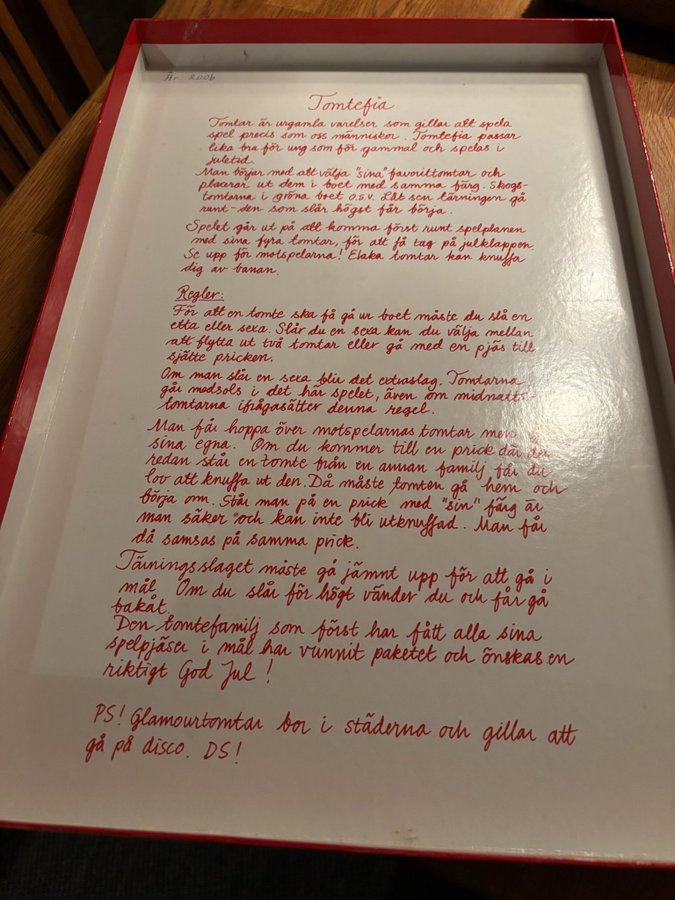 År 2006
Tomtefia
Tomtar är urgamla varelser som gillar att spela
spel precis som oss människor. Tomtefia passar
lika bra för ung som för gammal och spelas i
juletid.
Man börjar med att välja "sina" favorittomtar och
placerar ut dem i boet med samma färg. Skogs-
tomtarna i gröna boet o.s.v. Låt sen tärningen gå
runt - den som slår högst får börja.
Spelet går ut på att komma först runt spelplanen
med sina fyra tomtar, för att få tag på julklappen.
Se upp för motspelarna! Elaka tomtar kan knuffa
dig av banan.
Regler:
För att en tomte ska få gå ur boet måste du slå en
etta eller sexa. Slår du en sexa kan du välja mellan
att flytta ut två tomtar eller gå med en pjäs till
sjätte pricken.
Om man slår en sexa blir det extraslag. Tomtarna
går medsols i det här spelet, även om midnatts-
tomtarna ifrågasätter denna regel.
Man får hoppa över motspelarnas tomtar men
sina egna. Om du kommer till en prick där det
redan står en tomte från en annan familj får du
lov att knuffa ut den. Då måste tomten gå hem och
börja om. Står man på en prick med "sin" färg är
man säker och kan inte bli utknuffad. Man får
då samsas på samma prick.
Tärningsslaget måste gå jämnt upp för att gå i
mål. Om du slår för högt vänder du och får gå
bakåt.
Den tomtefamilj som först har fått alla sina
spelpjäser i mål har vunnit paketet och önskas en
riktigt God Jul!
PS! Glamourtomtar bor i städerna och gillar att
gå på disco. DS!